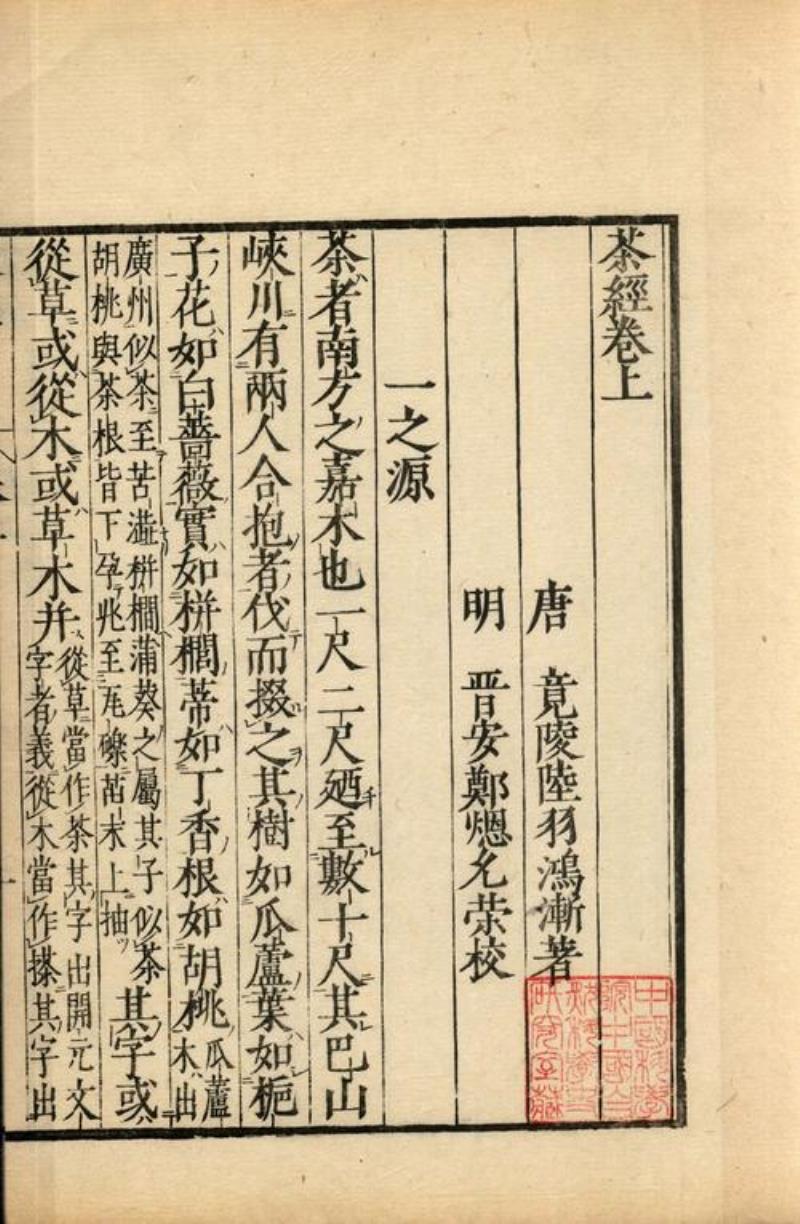 茶經卷上
唐　竟陵陸羽鴻漸著
明　晋安鄭熜允荣校
一之源
茶者南方之嘉木也一尺二尺廼至數十尺其巴山
峽川有兩人合抱者伐而掇之其樹如瓜蘆葉如梔
子花如白薔薇實如栟櫚蒂如丁香根如胡桃瓜蘆木出
廣州似茶至苦澁栟櫚蒲葵之屬其子似茶
胡桃與茶根皆下孕兆至瓦礫苗木上抽
其字或
從草或從木或草木并
從草當作茶其字出開元文
字者義從木當作搽其字出
中國科學
院中國自
然科學史
研究室藏